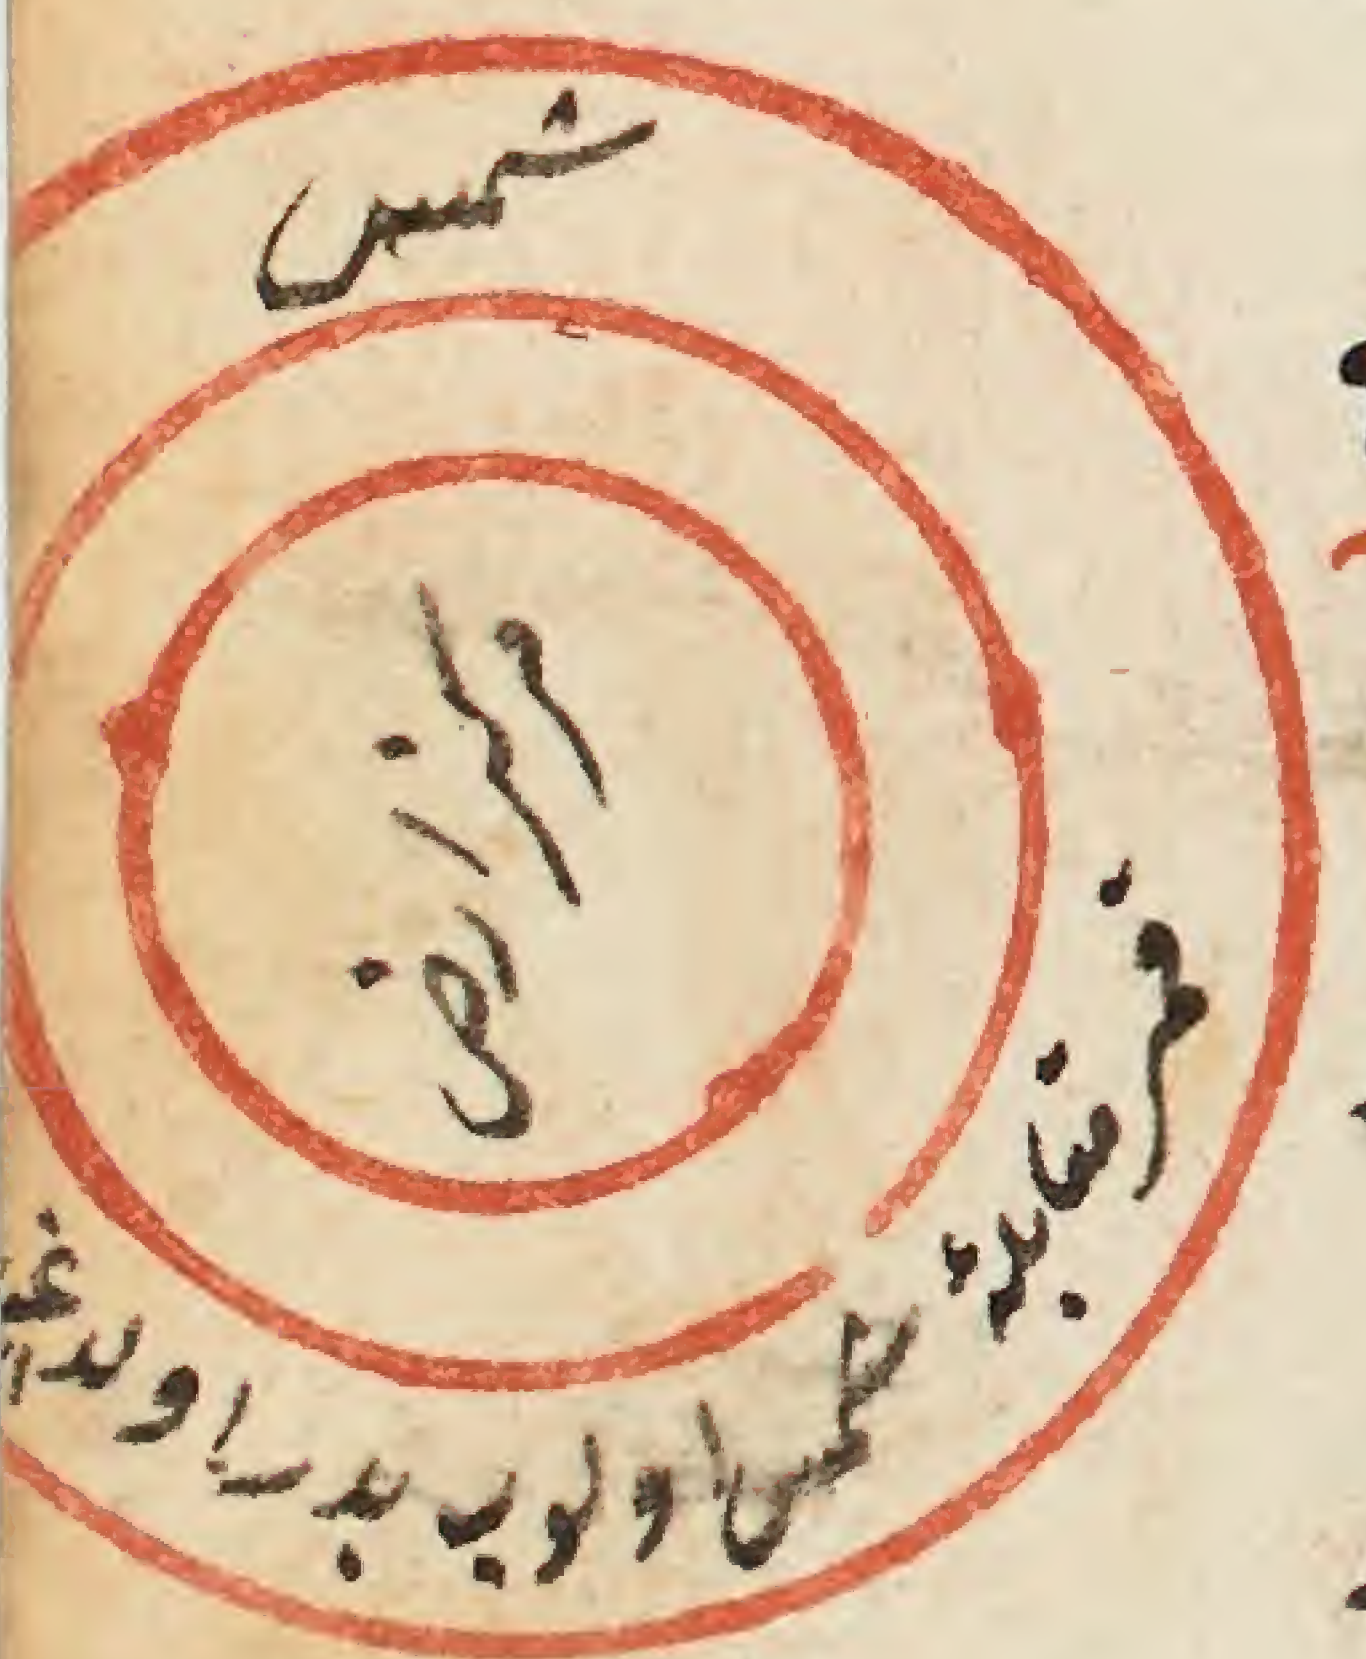 شمس
مركز ارض
قمر مقابلهٔ شمس اولوب بدر اولديغى